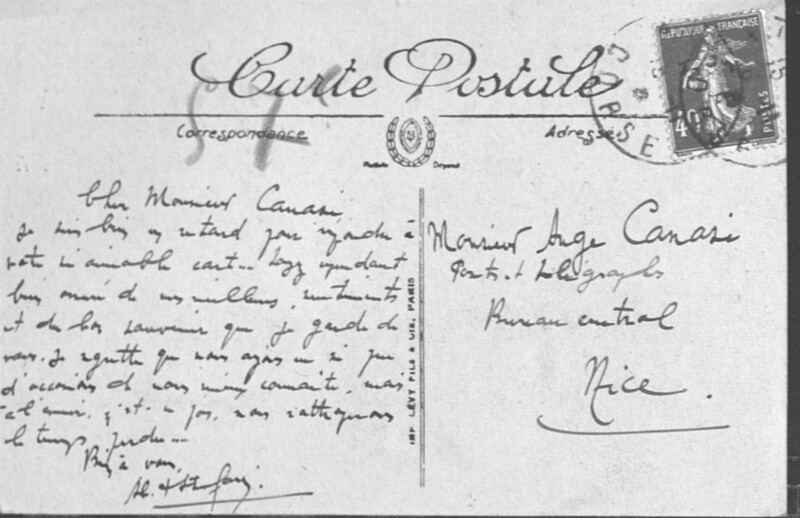 Carte Postale
Correspondance
Adresse
RÉPUBLIQUE FRANÇAISE
40
POSTES
CORSE
Modèle Déposé
Cher Monsieur Canasi
Je suis bien en retard pour répondre à
votre si aimable carte. Soyez cependant
bien assuré de mes meilleurs sentiments
et du bon souvenir que je garde de
vous. Je regrette que nous ayons eu si peu
d'occasions de nous mieux connaître, mais
à l'avenir, nous rattraperons
le temps perdu...
Bien à vous,
IMP. LÉVY FILS & CIE, PARIS
Monsieur Ange Canasi
Postes et Télégraphes
Bureau central
Nice.